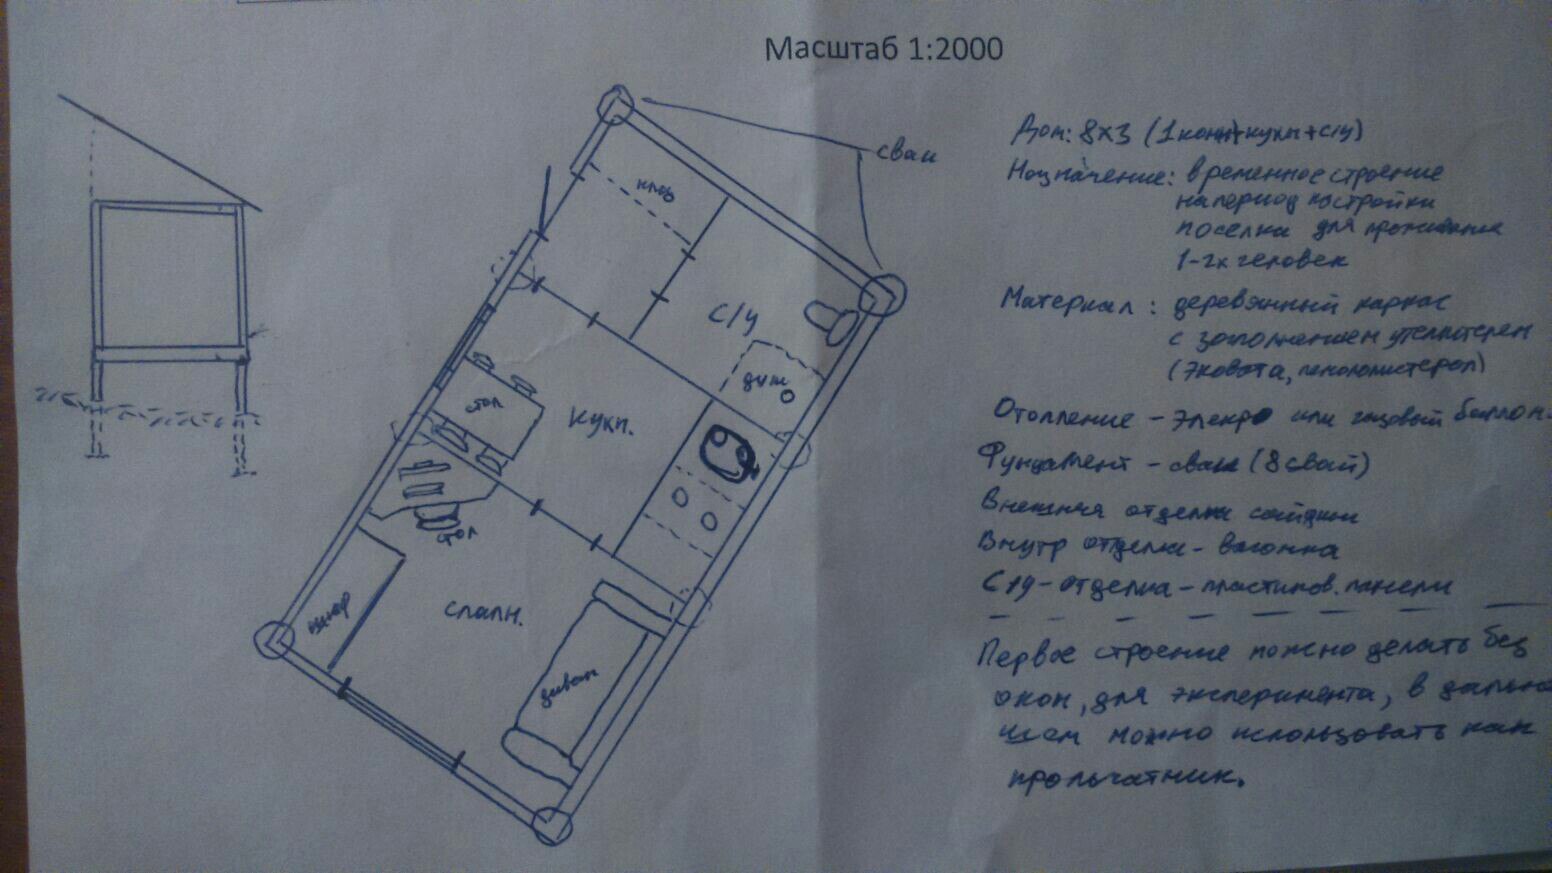 Масштаб 1:2000
сваи
клад
с/у
душ
стол
кухн.
стол
спалн.
шкаф
диван
Дом: 8х3 (1комн+кухн+с/у)
Назначение: временное строение
на период постройки
поселка для проживания
1-2х человек
Материал: деревянный каркас
с заполнением утеплителем
(эковата, пенополистерол)
Отопление - электро или газовый баллон.
Фундамент - сваи (8 свай)
Внешняя отделка сайдинг
Внутр отделка - вагонка
С/у - отделка - пластиков. панели
Первое строение можно делать без
окон, для эксперимента, в дальней
шем можно использовать как